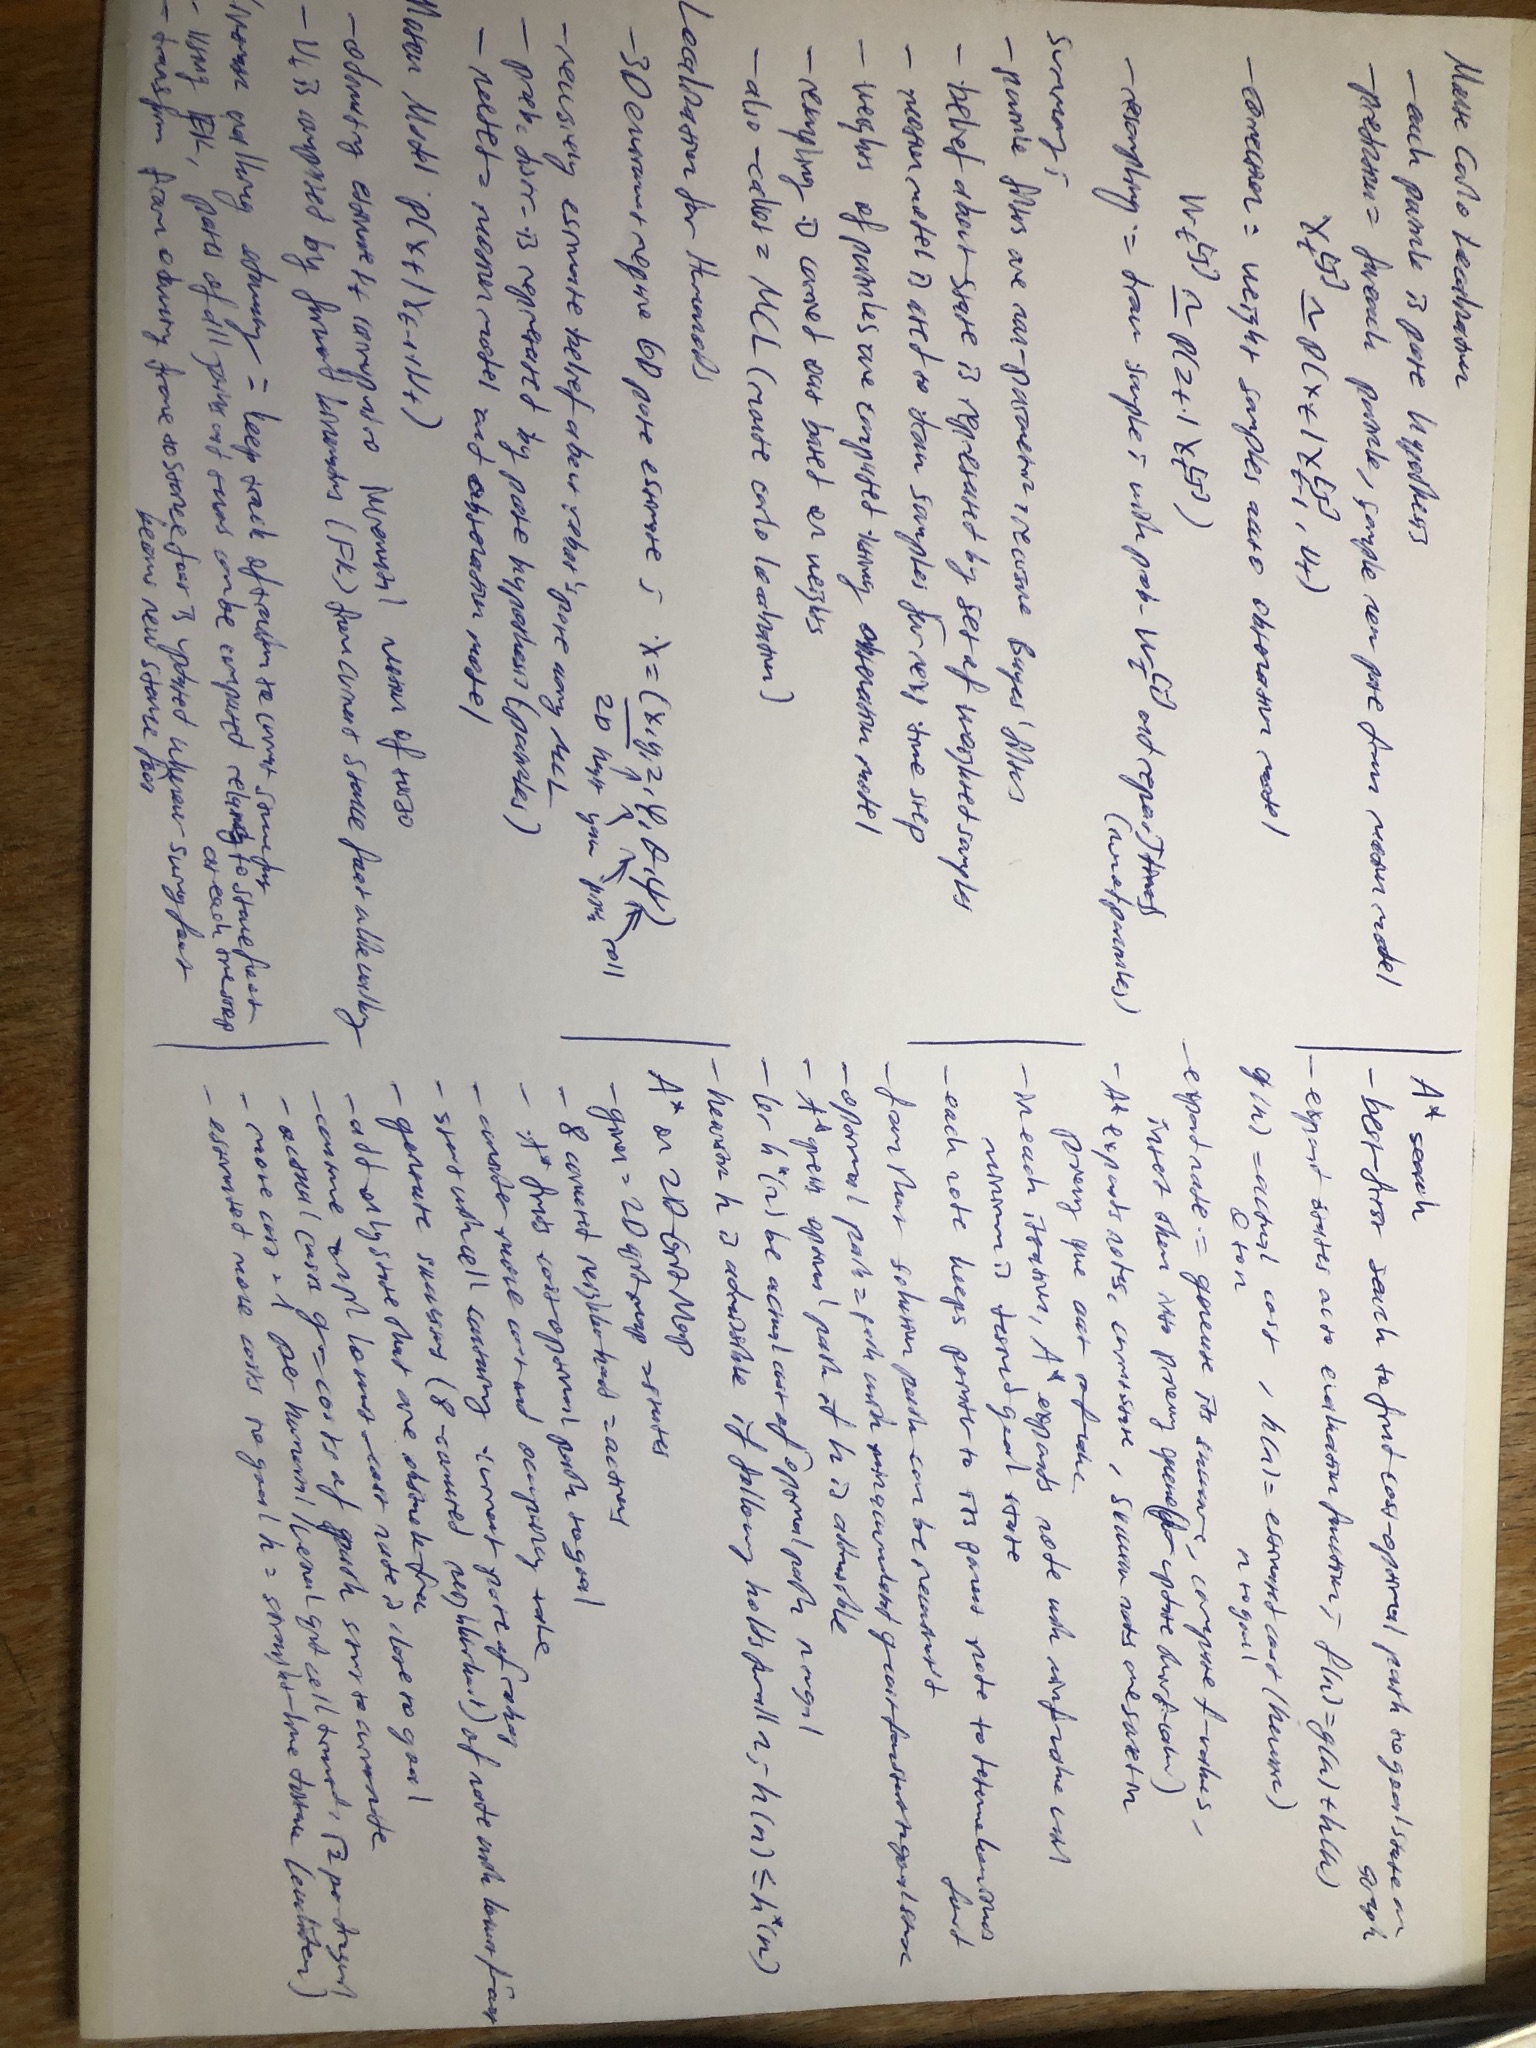 Monte Carlo Localization
- each particle is pose hypothesis
- prediction = foreach particle, sample new pose from motion model
x_t^[j] ~ p(x_t | x_t-1^[j], u_t)
- correction = weight samples acc to observation model
w_t^[j] ~ p(z_t | x_t^[j])
- resampling := draw sample i with prob. w_t^[i] and repeat J times
(num of particles)
Summary:
- particle filters are non-parametric recursive Bayes' filters
- belief about state is represented by set of weighted samples
- motion model is used to draw samples for next time step
- weights of particles are computed using observation model
- resampling is carried out based on weights
- also called = MCL (monte carlo localization)
Localization for Humanoids
- 3D environments require 6D pose estimate : x = (x,y,z,φ,θ,ψ)
2D hight yaw pitch roll
- recursively estimate belief about robot's pose using MCL
- prob. distr. is represented by pose hypothesis (particles)
- needed = motion model and observation model
Motion Model : p(x_t | x_t-1, u_t)
- odometry estimate corresp to motion of torso
- u_t is computed by forward kinematics (FK) from current stance foot while walking
odometry = keep track of transform to current stance foot
- using FK, poses of all joints and can be computed relating to stance foot
at each timestep
- transform from odometry frame to stance foot is updated whenever swing foot
becomes new stance foot
A* search
- best-first search to find cost-optimal path to goal state on
graph
- expand states acc to evaluation function : f(n) = g(n) + h(n)
g(n) = actual cost , h(n) = estimated cost (heuristic)
n to goal
- expand node := generate its successors, compute f-values,
insert them into priority queue
- A* expands nodes,
- in each iteration, A* expands node with min f-value until
minimum is goal state
- each node keeps pointer to its parent node to
- from that solution path can be
- optimal path = path with min
- A* finds optimal path if h is admissible
- let h*(n) be actual cost of optimal path n to goal
- heuristic h is admissible if following holds for all n : h(n) ≤ h*(n)
A* on 2D Grid Map
- given = 2D grid map = states
- 8 connected neighborhood = actions
- A* finds cost-optimal path to goal
- consider move cost and occupancy
- start with cell containing current pose of robot
- generate successors (8-connected neighborhood) of node with lowest f-cost
- add only state that are obstacle-free
- continue until lowest-cost node is close to goal
- actual costs g := costs of path start to current node
- move cost = 1 per horizontal/vertical grid cell √2 per diagonal
- estimated move costs to goal h = straight-line distance (euclidean)